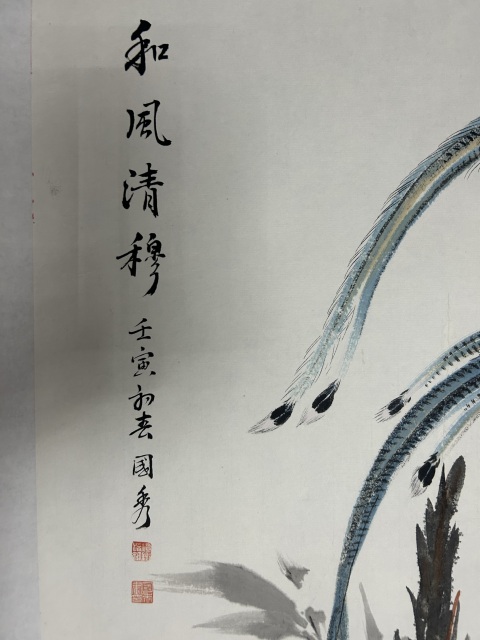 和風清穆
壬寅初春國秀